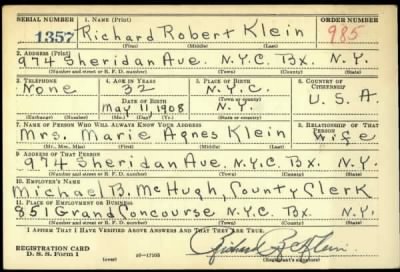 SERIAL NUMBER 1. NAME (Print) ORDER NUMBER
1357 Richard Robert Klein 985
(First) (Middle) (Last)
2. ADDRESS (Print)
974 Sheridan Ave. N.Y.C. Bx. N.Y.
(Number and street or R. F. D. number) (Town) (County) (State)
3. TELEPHONE 4. AGE IN YEARS 5. PLACE OF BIRTH 6. COUNTRY OF CITIZENSHIP
None 32 N.Y.C.
DATE OF BIRTH (Town or county) U.S.A.
May 11, 1908 N.Y.
(Exchange) (Number) (Mo.) (Day) (Yr.) (State or country)
7. NAME OF PERSON WHO WILL ALWAYS KNOW YOUR ADDRESS 8. RELATIONSHIP OF THAT PERSON
Mrs. Marie Agnes Klein Wife
(Mr., Mrs., Miss) (First) (Middle) (Last)
9. ADDRESS OF THAT PERSON
974 Sheridan Ave. N.Y.C. Bx. N.Y.
(Number and street or R. F. D. number) (Town) (County) (State)
10. EMPLOYER'S NAME
Michael B. McHugh, County Clerk
11. PLACE OF EMPLOYMENT OR BUSINESS
851 Grand Concourse N.Y.C. Bx. N.Y.
(Number and street or R. F. D. number) (Town) (County) (State)
I AFFIRM THAT I HAVE VERIFIED ABOVE ANSWERS AND THAT THEY ARE TRUE.
REGISTRATION CARD
D. S. S. Form 1 (over) 16—17105 Richard R. Klein